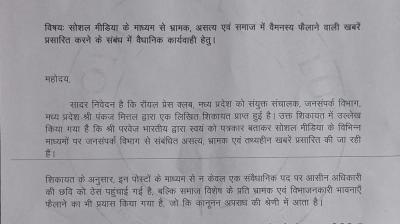 विषयः सोशल मीडिया के माध्यम से भ्रामक, असत्य एवं समाज में वैमनस्य फैलाने वाली खबरें
प्रसारित करने के संबंध में वैधानिक कार्यवाही हेतु।
महोदय,
सादर निवेदन है कि रॉयल प्रेस क्लब, मध्य प्रदेश को संयुक्त संचालक, जनसंपर्क विभाग,
मध्य प्रदेश श्री पंकज मित्तल द्वारा एक लिखित शिकायत प्राप्त हुई है। उक्त शिकायत में उल्लेख
किया गया है कि श्री परवेज भारतीय द्वारा स्वयं को पत्रकार बताकर सोशल मीडिया के विभिन्न
माध्यमों पर जनसंपर्क विभाग से संबंधित असत्य, भ्रामक एवं तथ्यहीन खबरें प्रसारित की जा रही
हैं।
शिकायत के अनुसार, इन पोस्टों के माध्यम से न केवल एक संवैधानिक पद पर आसीन अधिकारी
की छवि को ठेस पहुंचाई गई है, बल्कि समाज विशेष के प्रति भ्रामक एवं विभाजनकारी भावनाएँ
फैलाने का भी प्रयास किया गया है, जो कि कानूनन अपराध की श्रेणी में आता है।